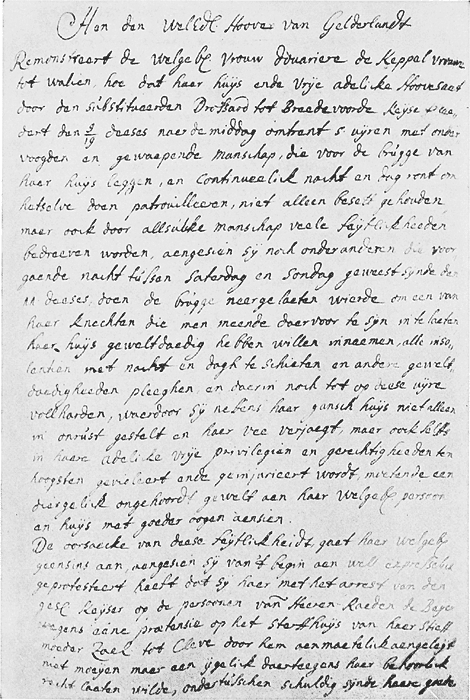 Aen den WelEd. Hoove van Gelderlandt
Remonstreert de welgeb. vrouw douariere de Keppel vrouwe
tot walien, hoe dat haer huijs ende vrije adelicke Hoovesaet
door den substitueerden Drossard tot Breedevoorde Keijser
dert den 9/19 deeses naer de middag omtrent 5 uijren met onder
voogden en gewaepende manschap, die voor de brugge van
haer huijs leggen, en Continueelick nacht en dag ront om
hetselve doen patrouilleeren, niet alleen beset gehouden
maer oock door allsulcke manschap veele feijtlickheeden
bedreeven worden, aengesien sij noch onder anderen die voor
gaende nacht tussen Saterdag en Sondag geweest sijnde den
11 deeses, doen de brugge neergelaeten wierde om een van
haer knechten die men meende daervoor te sijn in te laeten
haer huijs geweltdaedig hebben willen inneemen, alle inso
lentien met nacht en dagh te schieten en andere gewelt
daedigheeden pleeghen en daerin noch tot op deese uijre
vollharden, waerdoor sij nebens haer gansch huijs niet alleen
in onrust gestelt en haer vee verjaegt, maer oock selfs
in haere adelicke vrije privilegien en gerechtigheeden ten
hoogsten gevioleert ende geinjurieert wordt, moetende een
diergelick ongehoordt gewelt aen haer welgeb. persoon
en huijs met goeder oogen aensien.
De oorsaecke van deese feijtlickheidt, gaet haer welgeb.
geensins aen, aengesien sij van't begin aen well expresselick
geprotesteert heeft dat sij haer met het arrest van den
ges. Keijser op de persoonen van Heeren Raeden de Beijer
wegens eene praetensie op het Sterfhuijs van haer Stieff
moeder Zael. tot Cleve door hem aenmaetelick aengeleijt
niet moeijen maer een ijgelick daerteegens haer behoorlick
recht laeten wilde, ondertusschen schuldig sijnde haere goede